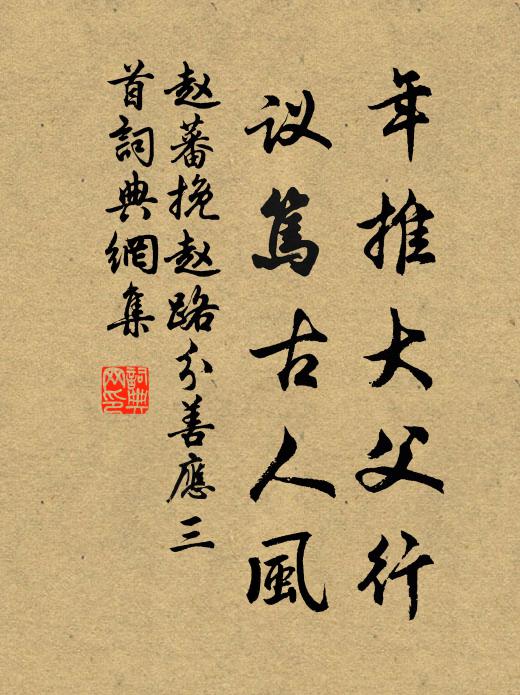 年推大父行
议篤古人風
赵蕃挽赵路分善應三
首詞典網集
詞典
网印